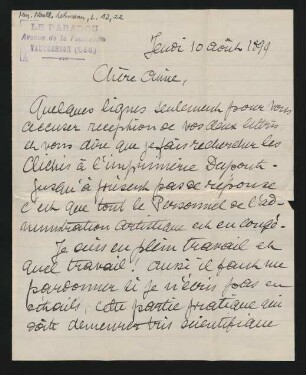 LE PARADOU
Avenue de la
VAUCRESSON
Jeudi 10 août 1899
Chère Amie,
Quelques lignes seulement pour vous
accuser réception de vos deux lettres
et vous dire que je fais rechercher les
Clichés à l'imprimerie Dupont.
Jusqu'à présent pas de réponse
c'est que tout le Personnel de l'ad-
ministration Artistique est en congé.
Je suis en plein travail et
quel travail! aussi il faut me
pardonner si je n'écris pas en
détails, cette partie pratique qui
doit demeurer très scientifique